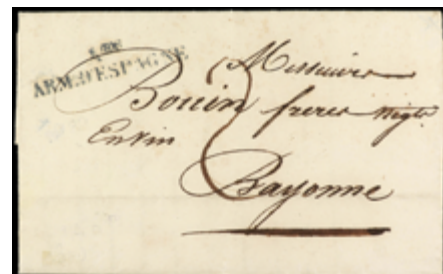 ARM. D'ESPAGNE
Messieurs
Bouin freres Negts
En Vin
Bayonne